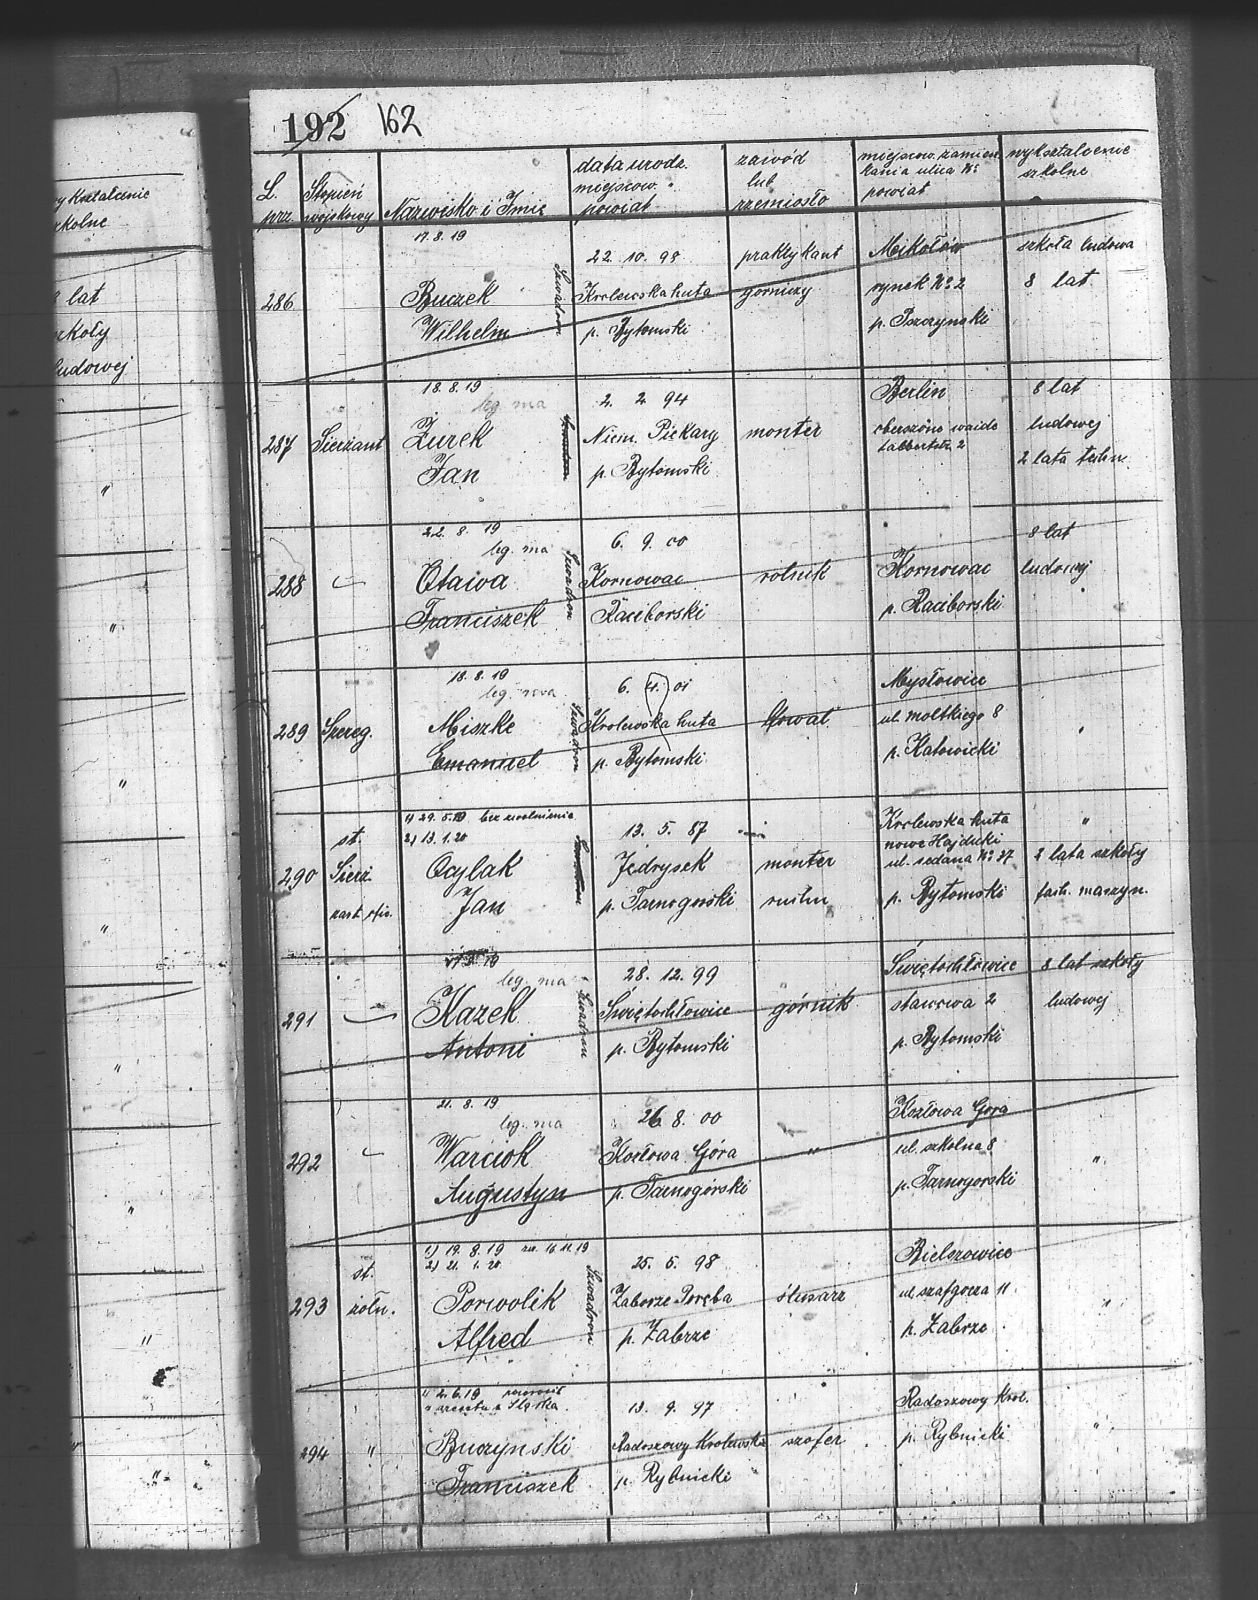 y kształcenie
zkolne
8 lat
szkoły
ludowej
"
"
"
"
"
"
"
"
192 162
L. prz.
Stopień wojskowy
Nazwisko i Imię
data urodz. miejscow. powiat
zawód lub rzemiosło
miejscow. zamiesz kania ulica № powiat
wykształcenie szkolne
286
17.8.19
Buczek
Wilhelm
Szwadron
22. 10. 98
Krolewska huta
p. Bytomski
praktykant
gorniczy
Mikołów
rynek № 2
p. Pszczynski
szkoła ludowa
8 lat
287
Sierżant
18.8.19
leg. ma
Żurek
Jan
Szwadron
2. 2. 94
Niem. Piekary
p. Bytomski
monter
Berlin
8 lat
ludowej
2 lata techn
288
22. 8. 19
leg. ma
Otawa
Franciszek
Szwadron
6. 9. 00
Kornowac
Raciborski
rolnik
Kornowac
p. Raciborski
8 lat
ludowej
289
Szereg.
18.8.19
leg.
Miszke
Emanuel
Szwadron
6. 4. 01
Krolewska huta
p. Bytomski
Mysłowice
ul. moltkiego 8
p. Katowicki
"
290
st.
Sierż.
zast. ofic.
1) 29. 5. 19 bez zwolnienia
2) 13. 1. 20
Ocylak
Jan
Szwadron
13. 5. 87
Jędrysek
p. Tarnogorski
monter
Krolewska huta
nowe Hajduki
ul. sedana № 37
p. Bytomski
"
2 lata szkoły
fach. maszyn.
291
leg. ma
Kazek
Antoni
Szwadron
28. 12. 99
Świętochłowice
p. Bytomski
górnik
Świętochłowice
stawowa 2
p. Bytomski
8 lat szkoły
ludowej
292
21. 8. 19
leg. ma
Warciok
Augustyn
26. 8. 00
Kozłowa Góra
p. Tarnogórski
"
Kozłowa Gora
ul. szkolna 8
p. Tarnogorski
"
293
st.
żołn.
1) 19. 8. 19 zw. 16. 11. 19
2) 21. 1. 20
Porwolik
Alfred
Szwadron
25. 5. 98
Zaborze Poręba
p. Zabrze
ślusarz
Bielszowice
p. Zabrze
"
294
"
1) 2.6.19 powrocił
z aresztu z Śląska
Buczynski
Franciszek
13. 9. 97
Radoszowy Krolewskie
p. Rybnicki
szofer
Radoszowy Krol.
p. Rybnicki
"